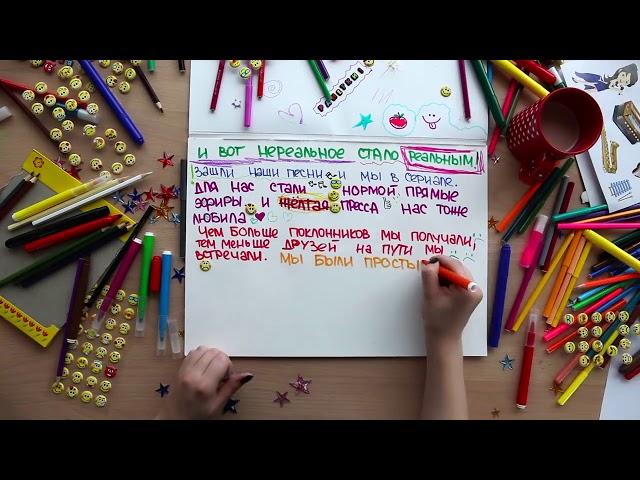 И ВОТ НЕРЕАЛЬНОЕ СТАЛО РЕАЛЬНЫМ!
ЗАШЛИ НАШИ ПЕСНИ И МЫ В СЕРИАЛЕ.
ДЛЯ НАС СТАЛИ НОРМОЙ ПРЯМЫЕ
ЭФИРЫ И ЖЁЛТАЯ ПРЕССА НАС ТОЖЕ
ЛЮБИЛА
ЧЕМ БОЛЬШЕ ПОКЛОННИКОВ МЫ ПОЛУЧАЛИ,
ТЕМ МЕНЬШЕ ДРУЗЕЙ НА ПУТИ МЫ
ВСТРЕЧАЛИ. МЫ БЫЛИ ПРОСТЫ